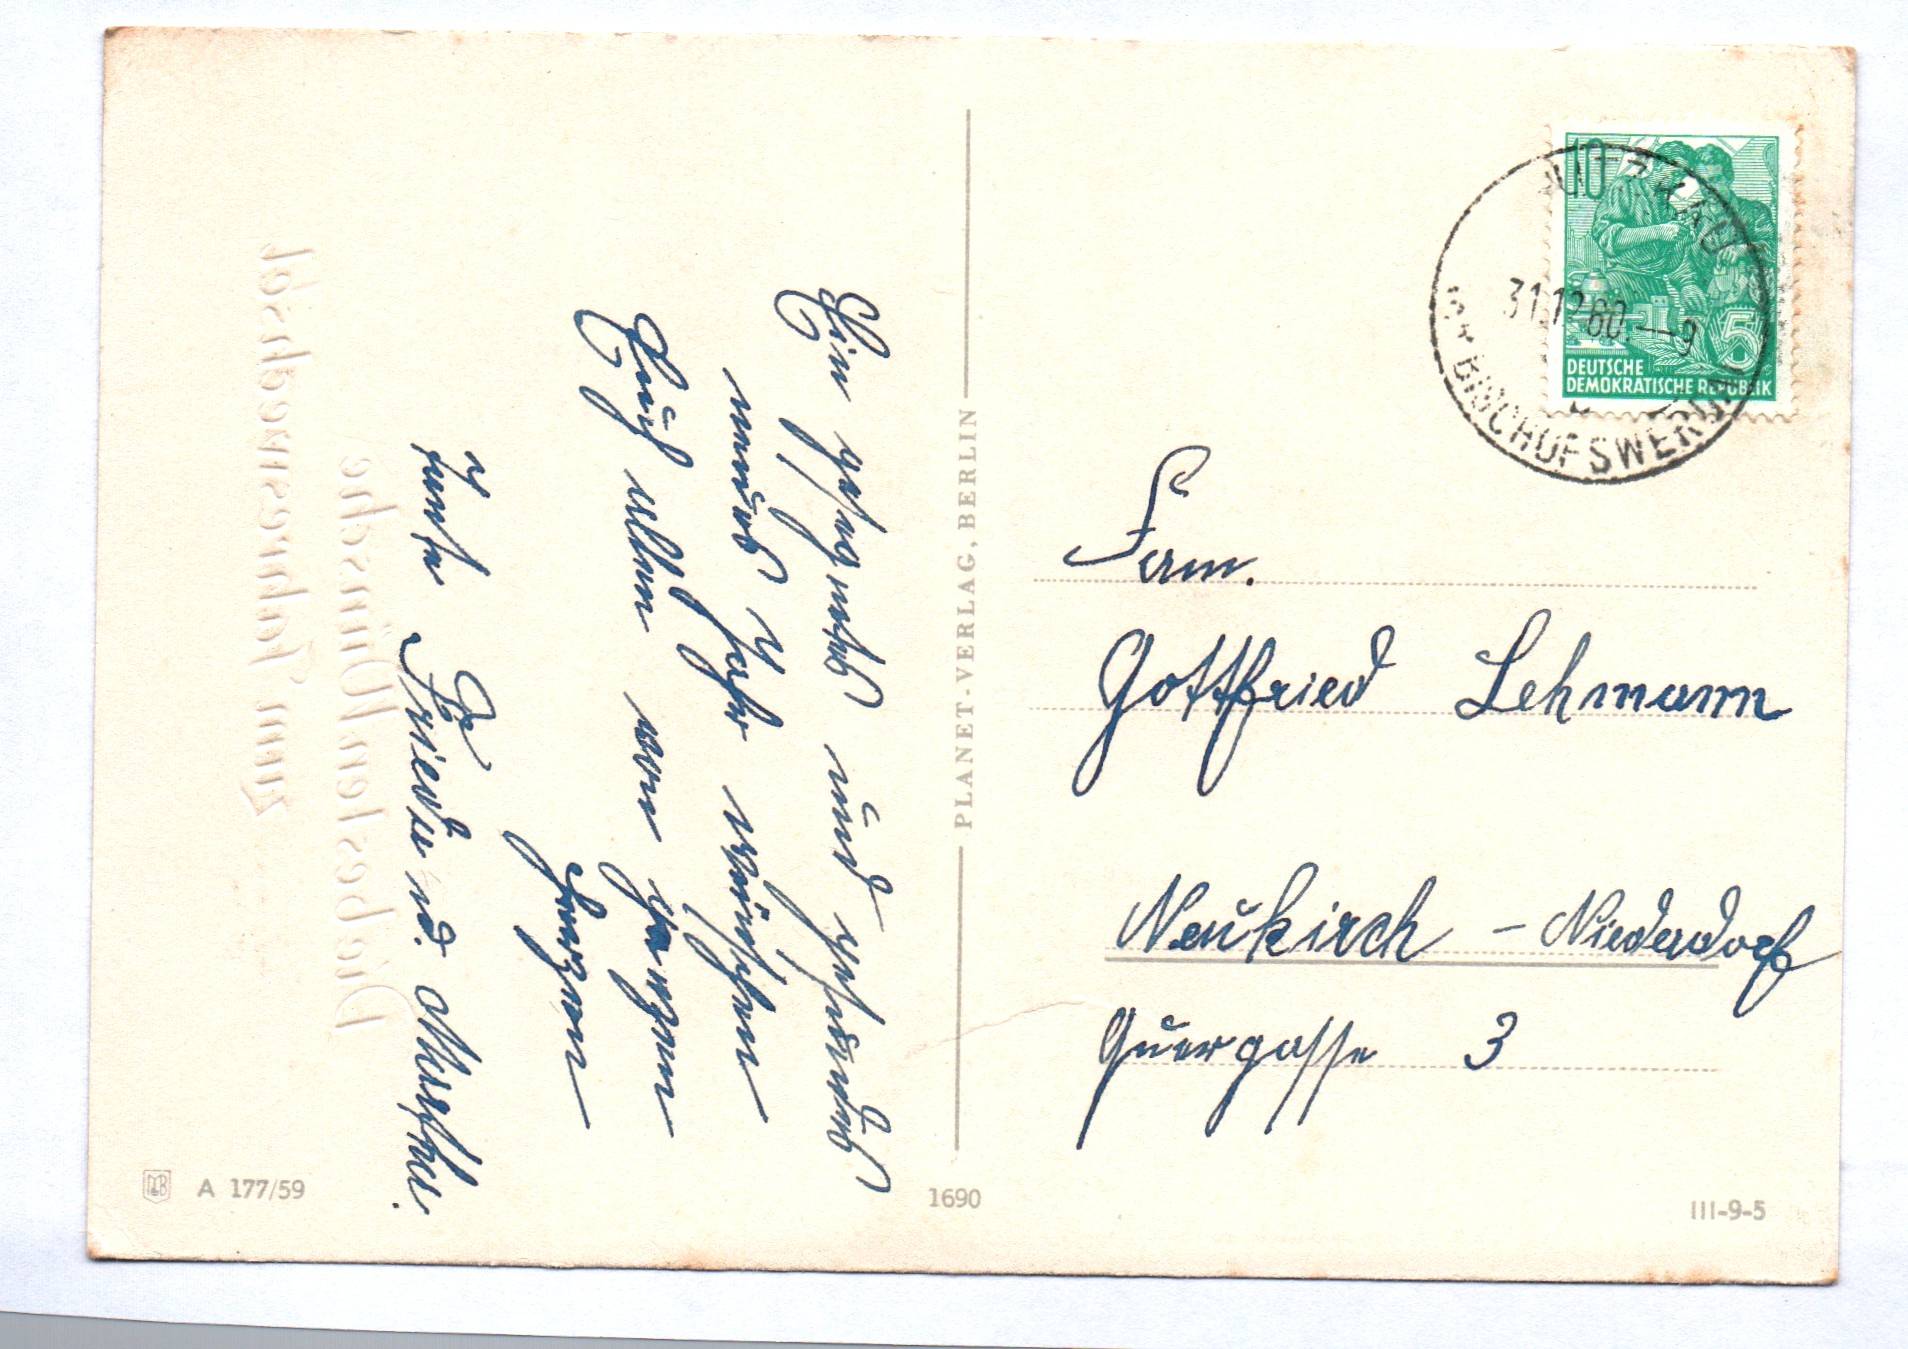 Ein gesegnetes und gesundes
neues Jahr wünschen
Euch allen von ganzem
Herzen
Fr.
Tante Friedel u. d. Martha.
Die besten Wünsche
zum Jahreswechsel
PLANET-VERLAG, BERLIN
A 177/59
1690
III-9-5
10
PUTZKAU
31.12.60.-9
BISCHOFSWERDA
5
DEUTSCHE
DEMOKRATISCHE REPUBLIK
Fam.
Gottfried Lehmann
Neukirch - Niederdorf
Quergasse 3